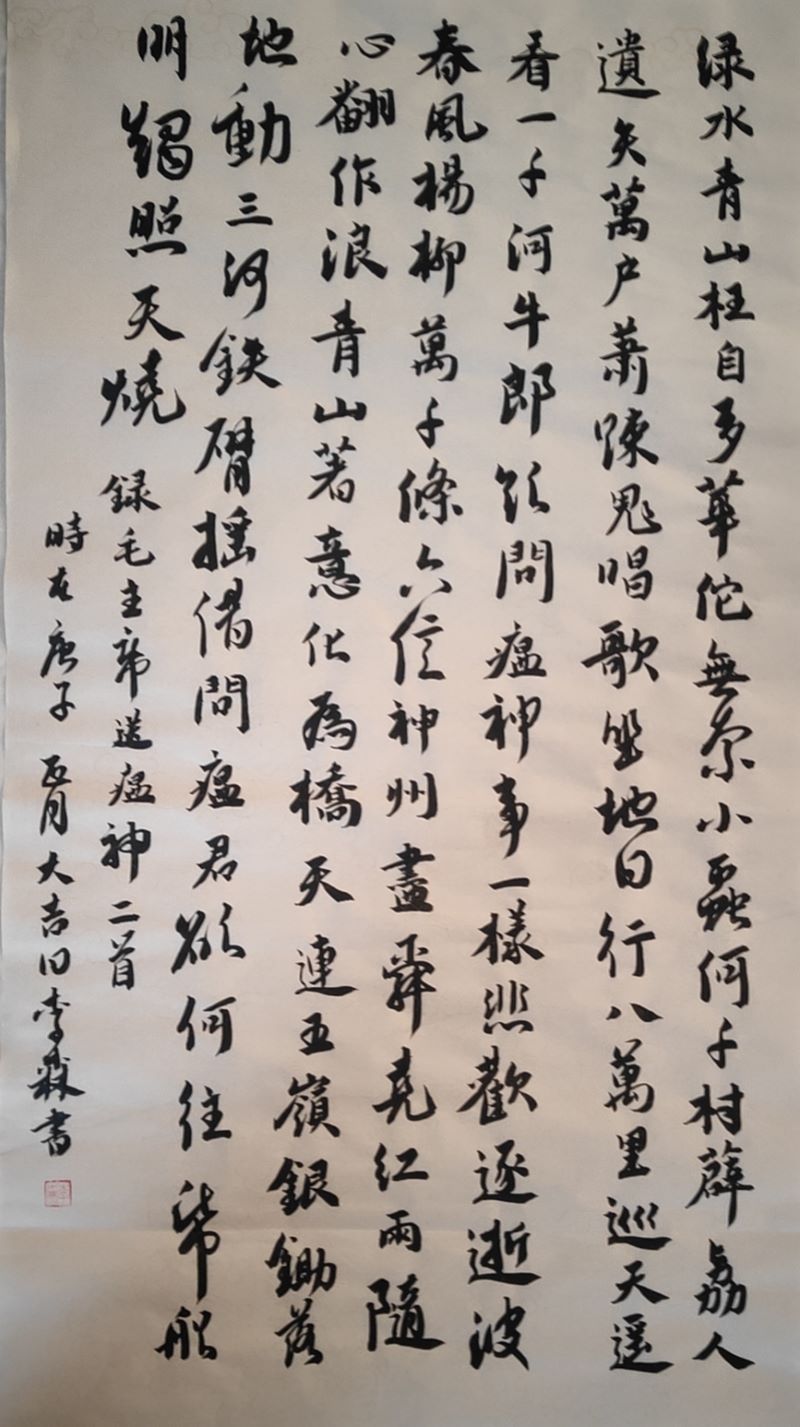 绿水青山枉自多華佗無奈小蟲何千村薜荔人
遺矢萬户蕭踈鬼唱歌坐地日行八萬里巡天遥
看一千河牛郎欲問瘟神事一樣悲歡逐逝波
春風楊柳萬千條六億神州盡舜堯紅雨隨
心翻作浪青山著意化為橋天連五嶺銀鋤落
地動三河鉄臂摇借問瘟君欲何往紙船
明燭照天燒
録毛主席送瘟神二首
時在庚子五月大吉日李森書